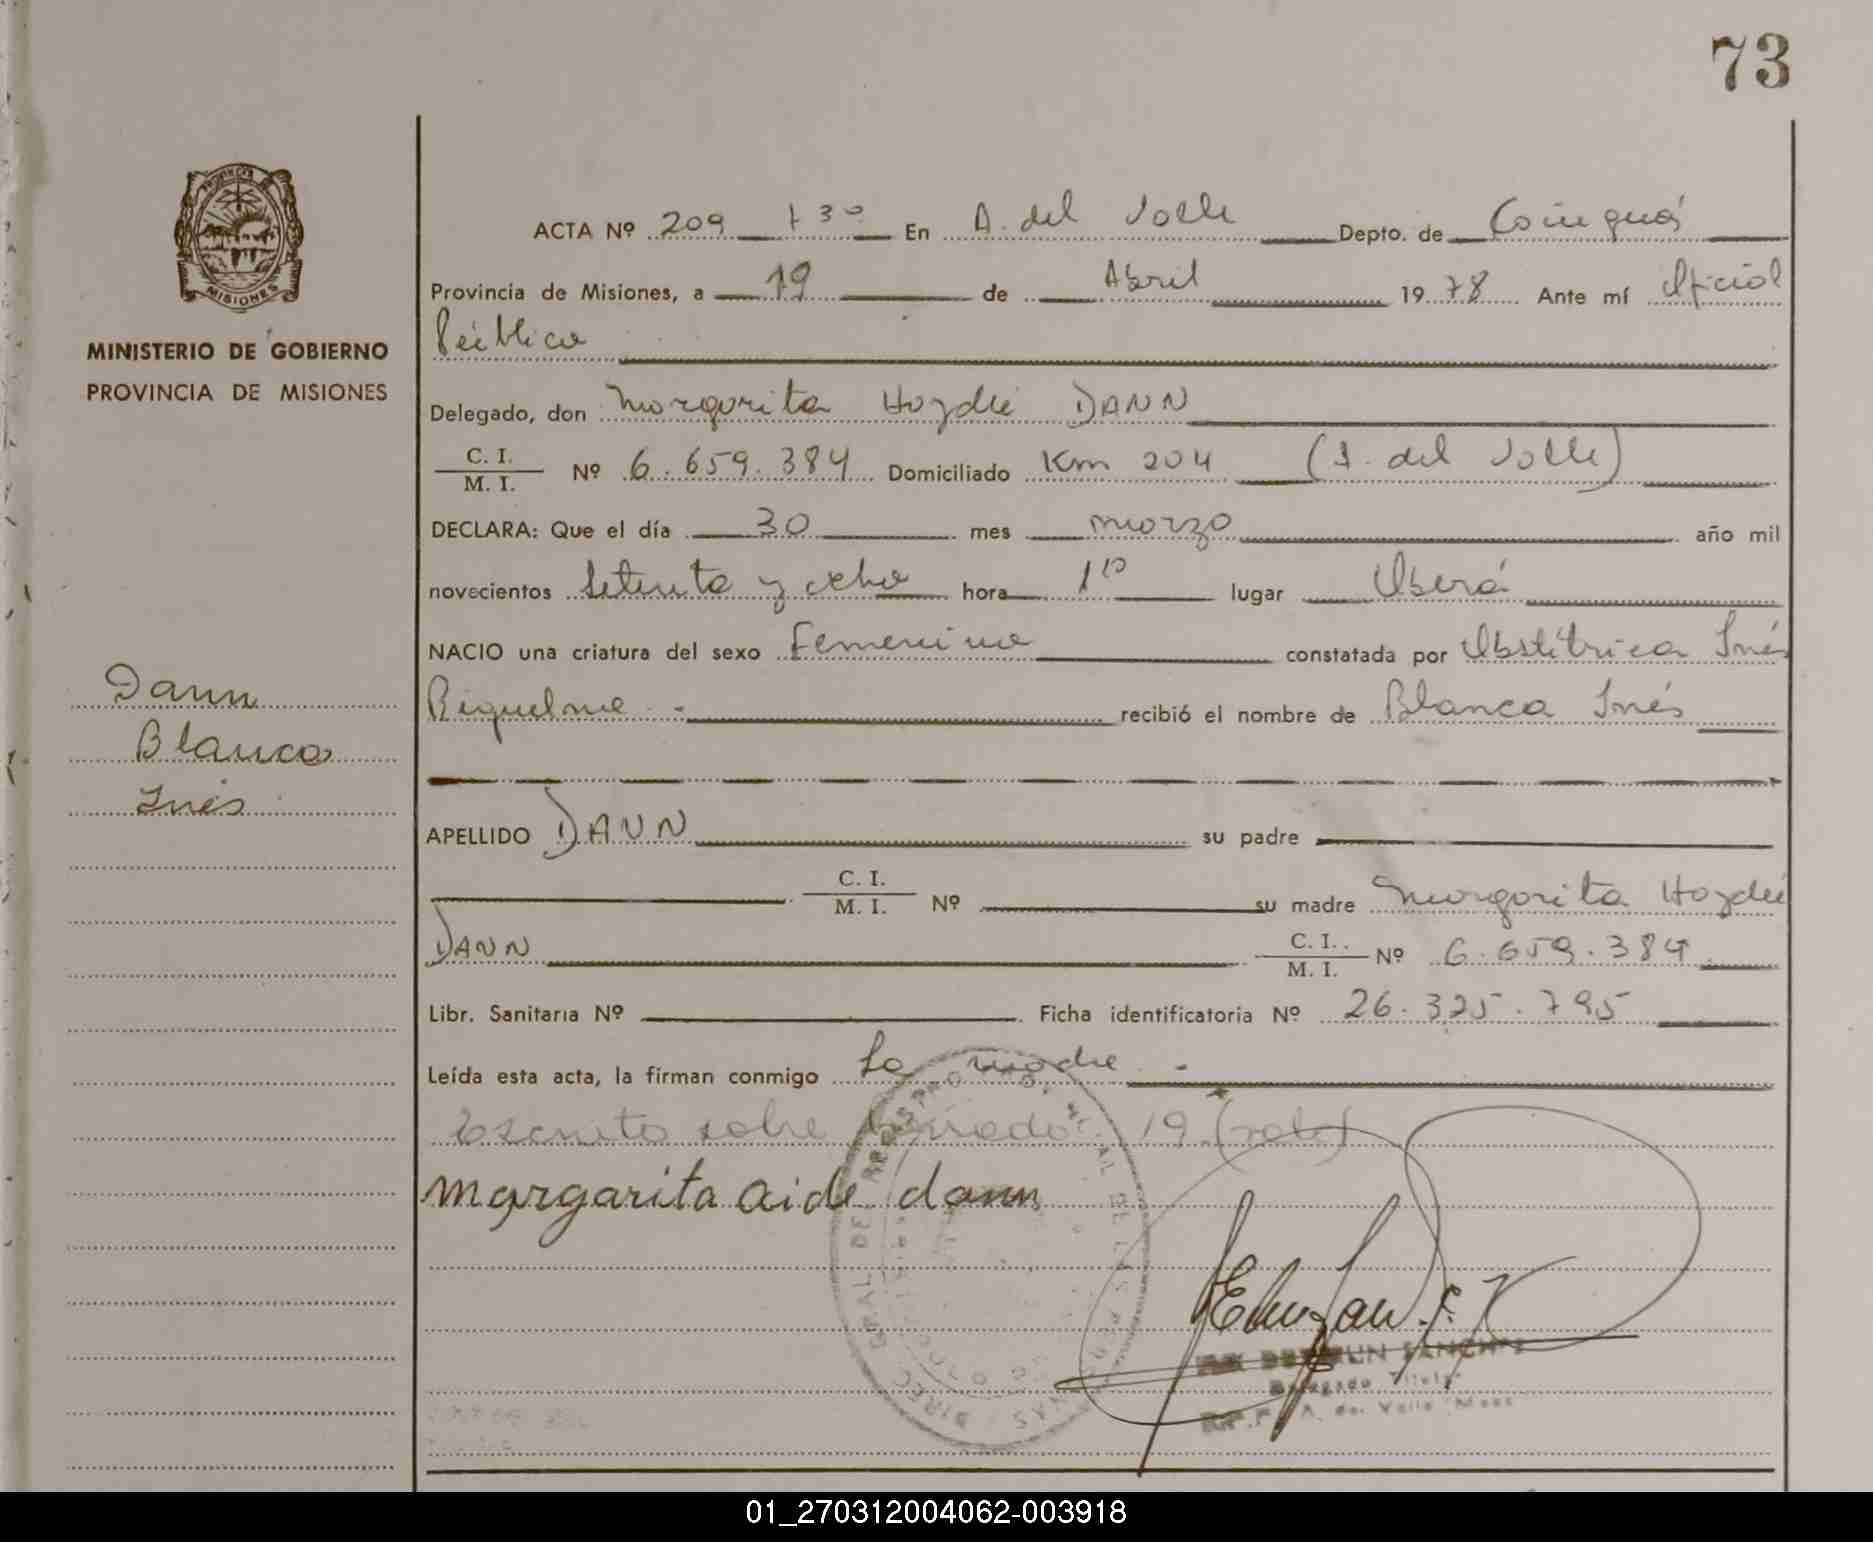 73
PROVINCIA
MISIONES
MINISTERIO DE GOBIERNO
PROVINCIA DE MISIONES
Dann
Blanca
Inés
ACTA Nº 209 En A. del Valle Depto. de Cainguás
Provincia de Misiones, a 19 de Abril 1978 Ante mí Oficial
Público
Delegado, don Margarita Haydeé DANN
C. I. / M. I. Nº 6.659.384 Domiciliado Km 204 (A. del Valle)
DECLARA: Que el día 30 mes marzo año mil
novecientos Setenta y ocho hora 1 lugar Oberá
NACIO una criatura del sexo Femenino constatada por Obstétrica Inés
Riquelme recibió el nombre de Blanca Inés
APELLIDO DANN su padre
C. I. / M. I. Nº su madre Margarita Haydeé
DANN C. I. / M. I. Nº 6.659.384
Libr. Sanitaria Nº Ficha identificatoria Nº 26.325.795
Leída esta acta, la firman conmigo La madre.-
Escrito sobre borrado: 19 (vale)
margarita aide dann
Delegado Titular
A. del Valle
01_270312004062-003918